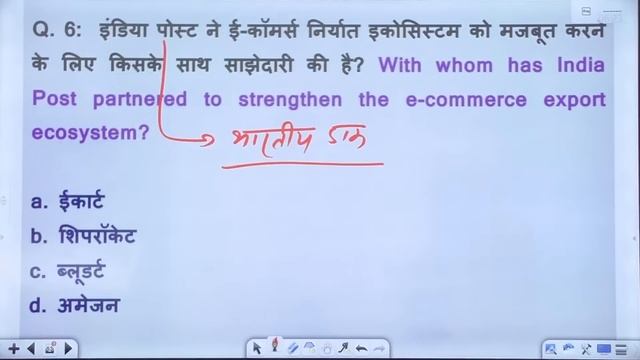 Q. 6: इंडिया पोस्ट ने ई-कॉमर्स निर्यात इकोसिस्टम को मजबूत करने
के लिए किसके साथ साझेदारी की है? With whom has India
Post partnered to strengthen the e-commerce export
ecosystem?
भारतीय डाक
a. ईकार्ट
b. शिपरॉकेट
c. ब्लूडर्ट
d. अमेजन